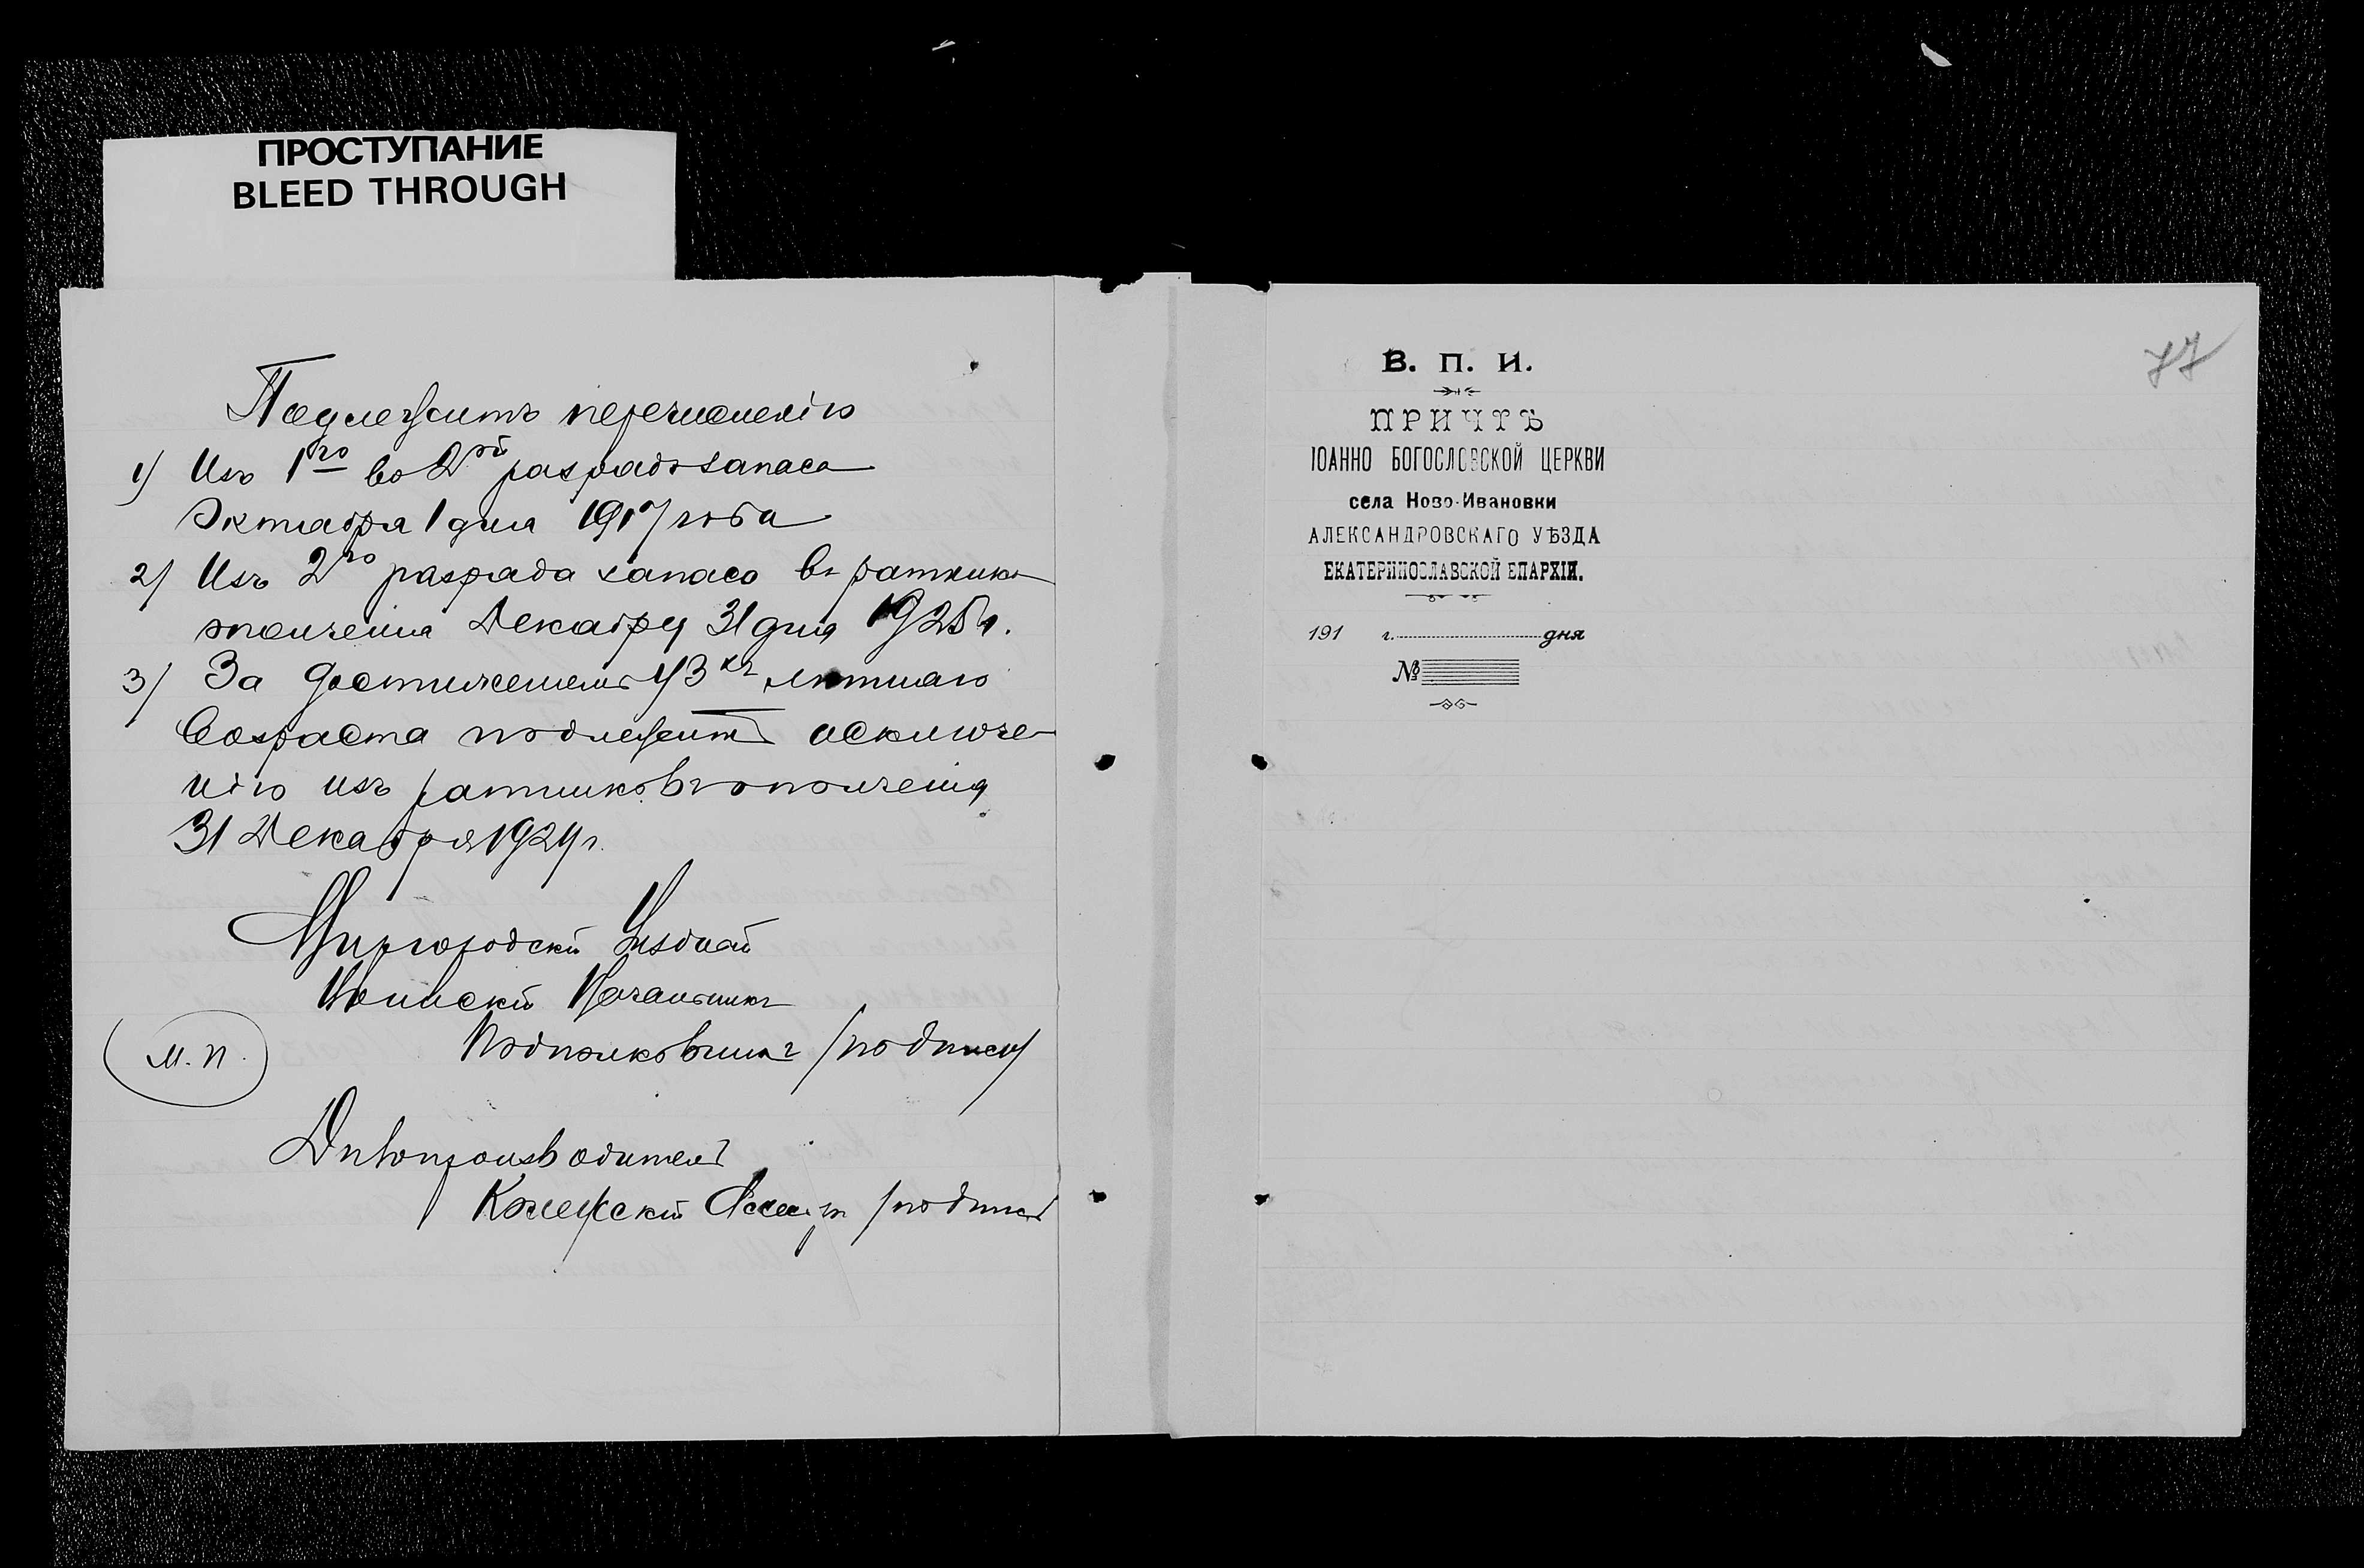 ПРОСТУПАНИЕ
BLEED THROUGH
Подлежитъ перечисленію
1) Изъ 1го во 2ой разрядъ запаса
Октября 1 дня 1917 года
2) Изъ 2го разряда запаса въ ратники
ополченія Декабря 31 дня 1925 г.
3) За достиженіемъ 43хъ лѣтняго
возраста подлежитъ исключе-
нію изъ ратниковъ ополченія
31 Декабря 192 г.
Миргородскій Уѣздный
Воинскій Начальникъ
Подполковникъ /подпись/
М. П.
Дѣлопроизводитель
Коллежскій Ассесоръ /подпись
77
В. П. И.
ПРИЧТЪ
ІОАННО БОГОСЛОВСКОЙ ЦЕРКВИ
села Ново-Ивановки
АЛЕКСАНДРОВСКАГО УѢЗДА
ЕКАТЕРИНОСЛАВСКОЙ ЕПАРХІИ.
191 г. дня
№